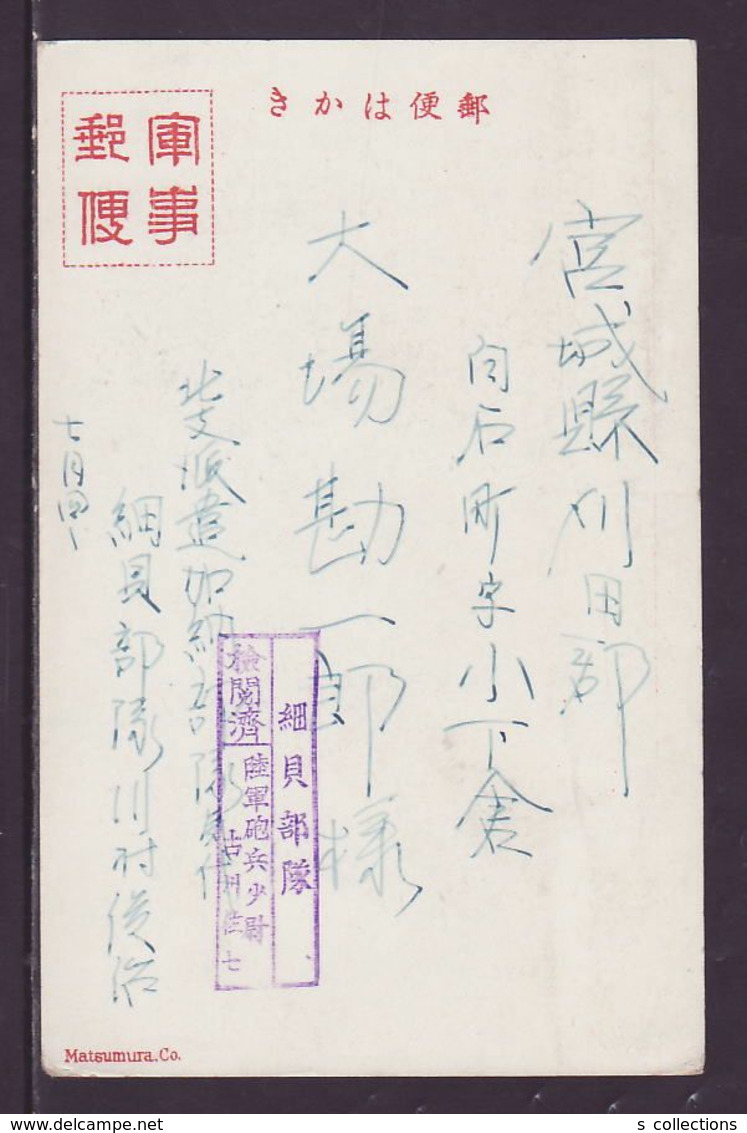 郵便はかき
軍事
郵便
宮城縣刈田郡
白石町字小下倉
大場勘一郎様
北支派遣加納部隊
細貝部隊川村俊治
七月
細貝部隊
檢閲濟
陸軍砲兵少尉
Matsumura.Co.
s collections
delcampe.net